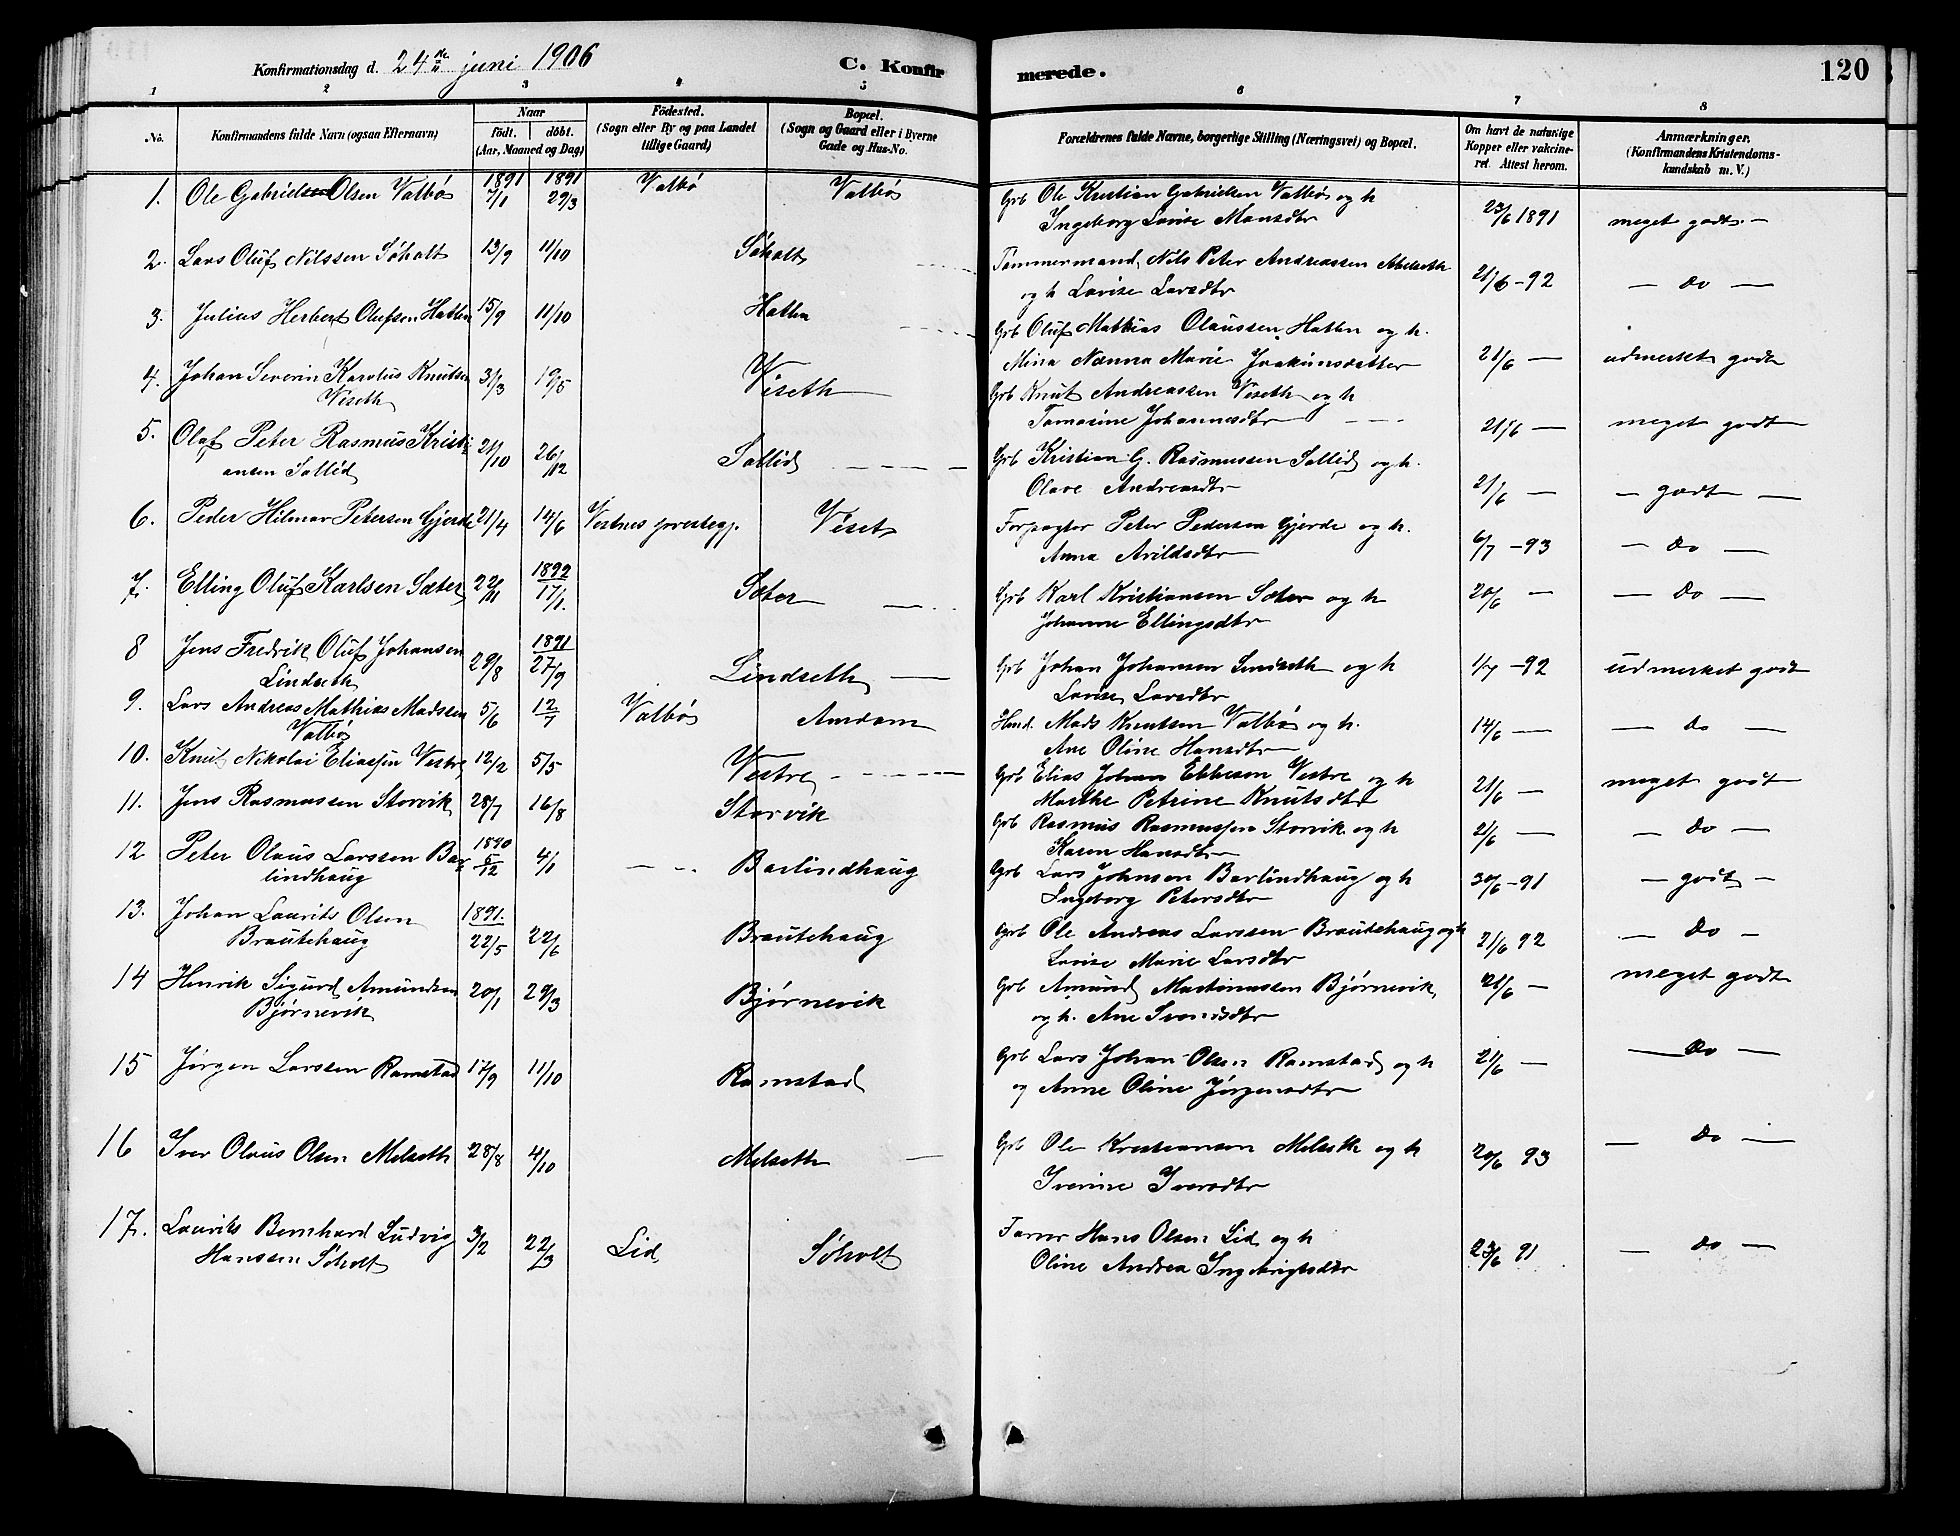 Konfirmationsdag d. 24de juni 1906 C. Konfirmerede. 120
1 2 3 4 5 6 7 8
No. Konfirmandens fulde Navn (ogsaa Efternavn) Naar födt. döbt. (Aar, Maaned og Dag) Födested. (Sogn eller By og paa Landet tillige Gaard) Bopæl. (Sogn og Gaard eller i Byerne Gade og Hus-No. Forældrenes fulde Navne, borgerlige Stilling (Næringsvei) og Bopæl. Om havt de naturlige Kopper eller vaccineret. Attest herom. Anmærkninger. (Konfirmandens Kristendomskundskab m. V.)
1. Ole Gabriel Olsen Valbø 1891 7/1 1891 29/3 Valbø Valbø Grb Ole Kristian Gabrielsen Valbø og h 23/6 1891 meget godt –
Ingeborg Lovise Mansdtr
2. Lars Oluf Nilssen Søholt 13/9 11/10 Søholt Tømmermand, Nils Peter Andreassen Abelseth 21/6 -92 — do —
og h Lovise Larsdtr
3. Julius Herbert Olufsen Hatlen 15/9 11/10 Hatlen Grb Oluf Mathias Olaussen Hatlen og h.
Mina Nanna Marie Joakimsdatter 21/6 — udmerket godt
4. Johan Severin Karolus Knutsen 31/3 10/5 Viseth Grb Knut Andreassen Viseth og h
Viseth Tomasine Johannesdtr 21/6 — meget godt
5. Olaf Peter Rasmus Kristi- 21/10 26/12 Sollid Grb Kristian G. Rasmussen Sollid og h.
ansen Sollid Olave Andreasdtr 21/6 — — godt —
6. Peder Hilmar Petersen Gjerde 21/4 14/6 Vestnes prestegj. Viset Forpagter Peter Pedersen Gjerde og h.
Anna Arildsdtr 6/7 -93 — do —
7. Elling Oluf Karlsen Sæter 22/11 1892 17/1. Sæter Grb Karl Kristiansen Sæter og h 20/6 — — do —
Johanne Ellingsdtr
8 Jens Fredrik Oluf Johansen 29/8 1891 27/9 Lindseth Grb Johan Johansen Lindseth og h 1/7 -92 udmerket godt
Lindseth Lovise Larsdtr
9. Lars Andreas Mathias Madssen 5/6 12/7 Valbø Amdam Husd. Mads Knutsen Valbø og h. 14/6 — — do —
Valbø Ane Oline Hansdtr
10. Knut Nikolai Eliassen Vestre 12/2 5/5 Vestre Grb Elias Johan Ebbesen Vestre og h 21/6 — meget godt
Marthe Petrine Knutsdtr
11. Jens Rasmussen Storvik 28/7 16/8 Storvik Grb Rasmus Rasmussen Storvik og h 21/6 — — do —
Karen Hansdtr
12 Peter Olaus Larssen Bar- 1890 5/12 4/1 Barlindhaug Grb Lars Johnsen Barlindhaug og h 30/6 -91 – godt –
lindhaug Ingeborg Petersdtr
13. Johan Laurits Olsen 1891. 22/5 22/6 Brautehaug Grb Ole Andreas Larssen Brautehaug og h 21/6 92 — do –
Brautehaug Lovise Marie Larsdtr
14 Henrik Sigurd Amundsen 20/1 29/3 Bjørnevik Grb Amund Martinussen Bjørnevik 21/6 — meget godt
Bjørnevik og h. Ane Svendsdtr
15 Jørgen Larssen Ramstad 17/9 11/10 Ramstad Grb Lars Johan Olsen Ramstad og h 21/6 — — do —
og Anne Oline Jørgensdtr
16 Iver Olaus Olsen Melseth 28/8 4/10 Melseth Grb Ole Kristiansen Melseth og h 20/6 93 — do —
Iverine Iversdtr
17. Laurits Bernhard Ludvig 3/2 22/3 Lid Søholt Farver Hans Olsen Lid og h 23/6 91 — do —
Hanssen Søholt Oline Andrea Ingebrigtsdtr